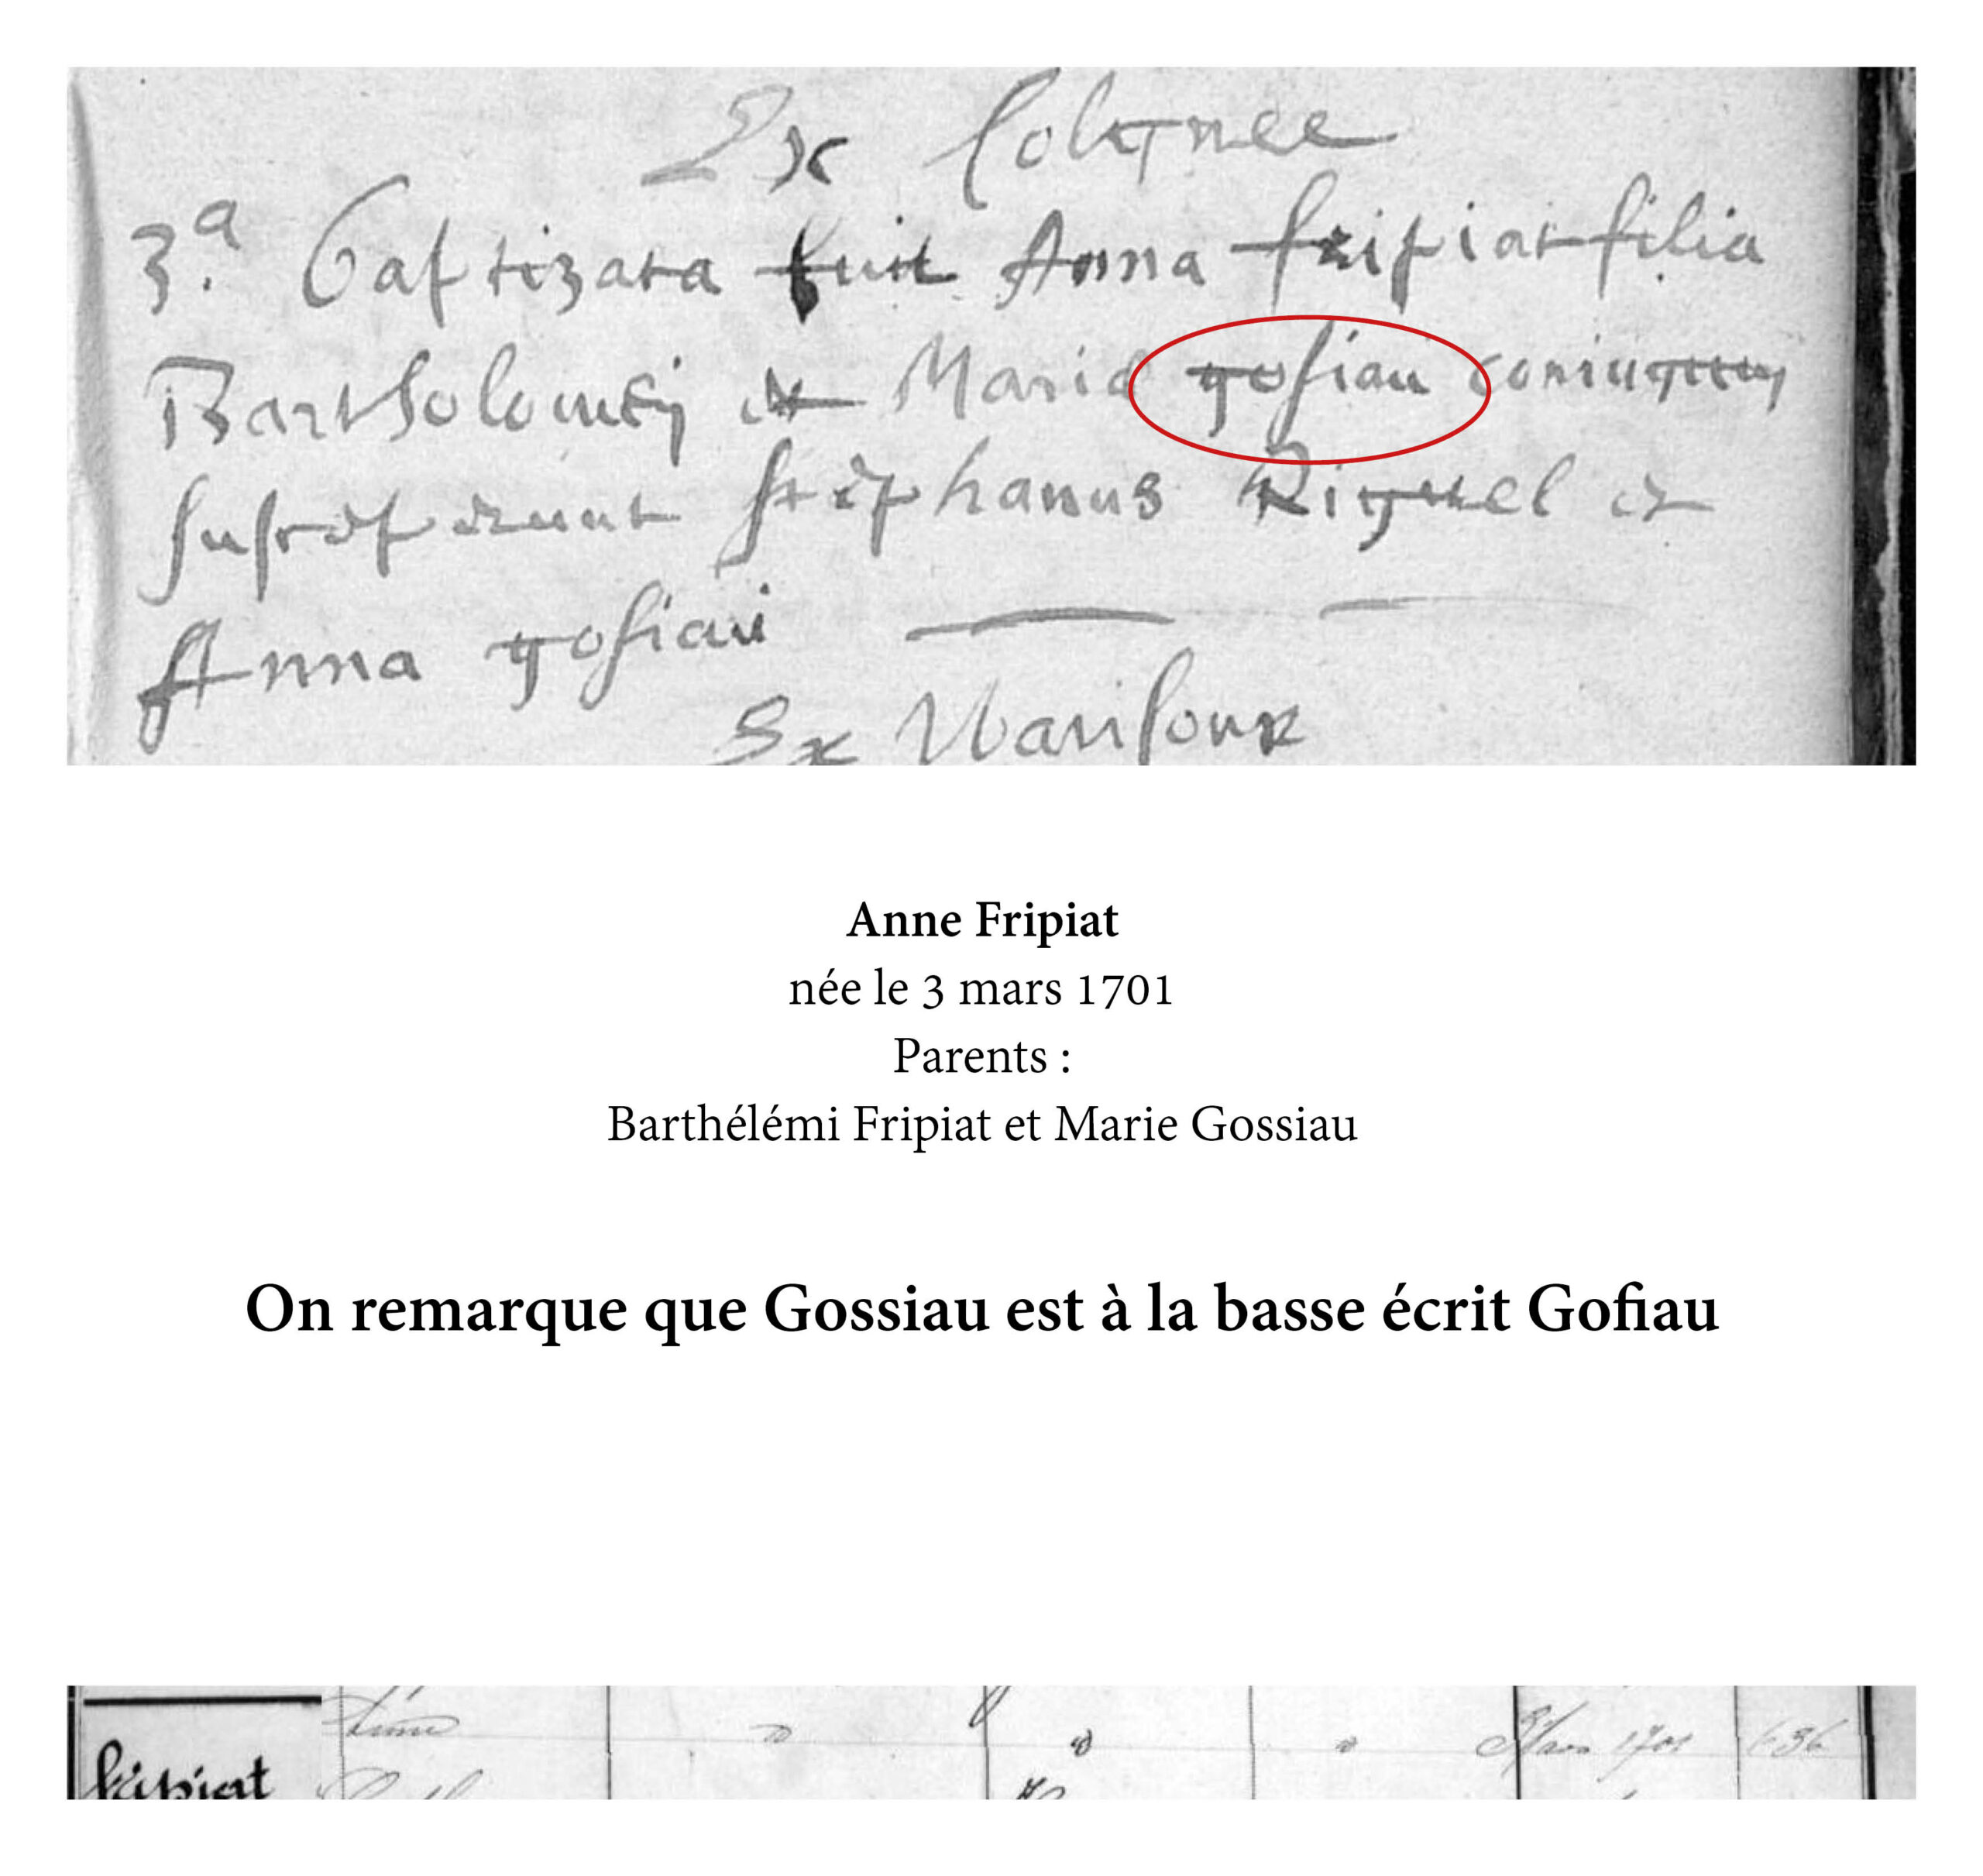 Ex Colognee
3.a baptizata fuit Anna fripiat filia
Bartholomei et Maria gosiau coniugum
susceperunt stephanus Riguel et
Anna gosiau
Ex
Anne Fripiat
née le 3 mars 1701
Parents :
Barthélémi Fripiat et Marie Gossiau
On remarque que Gossiau est à la basse écrit Gofiau
fripiat Anne 3 Mars 1701 636